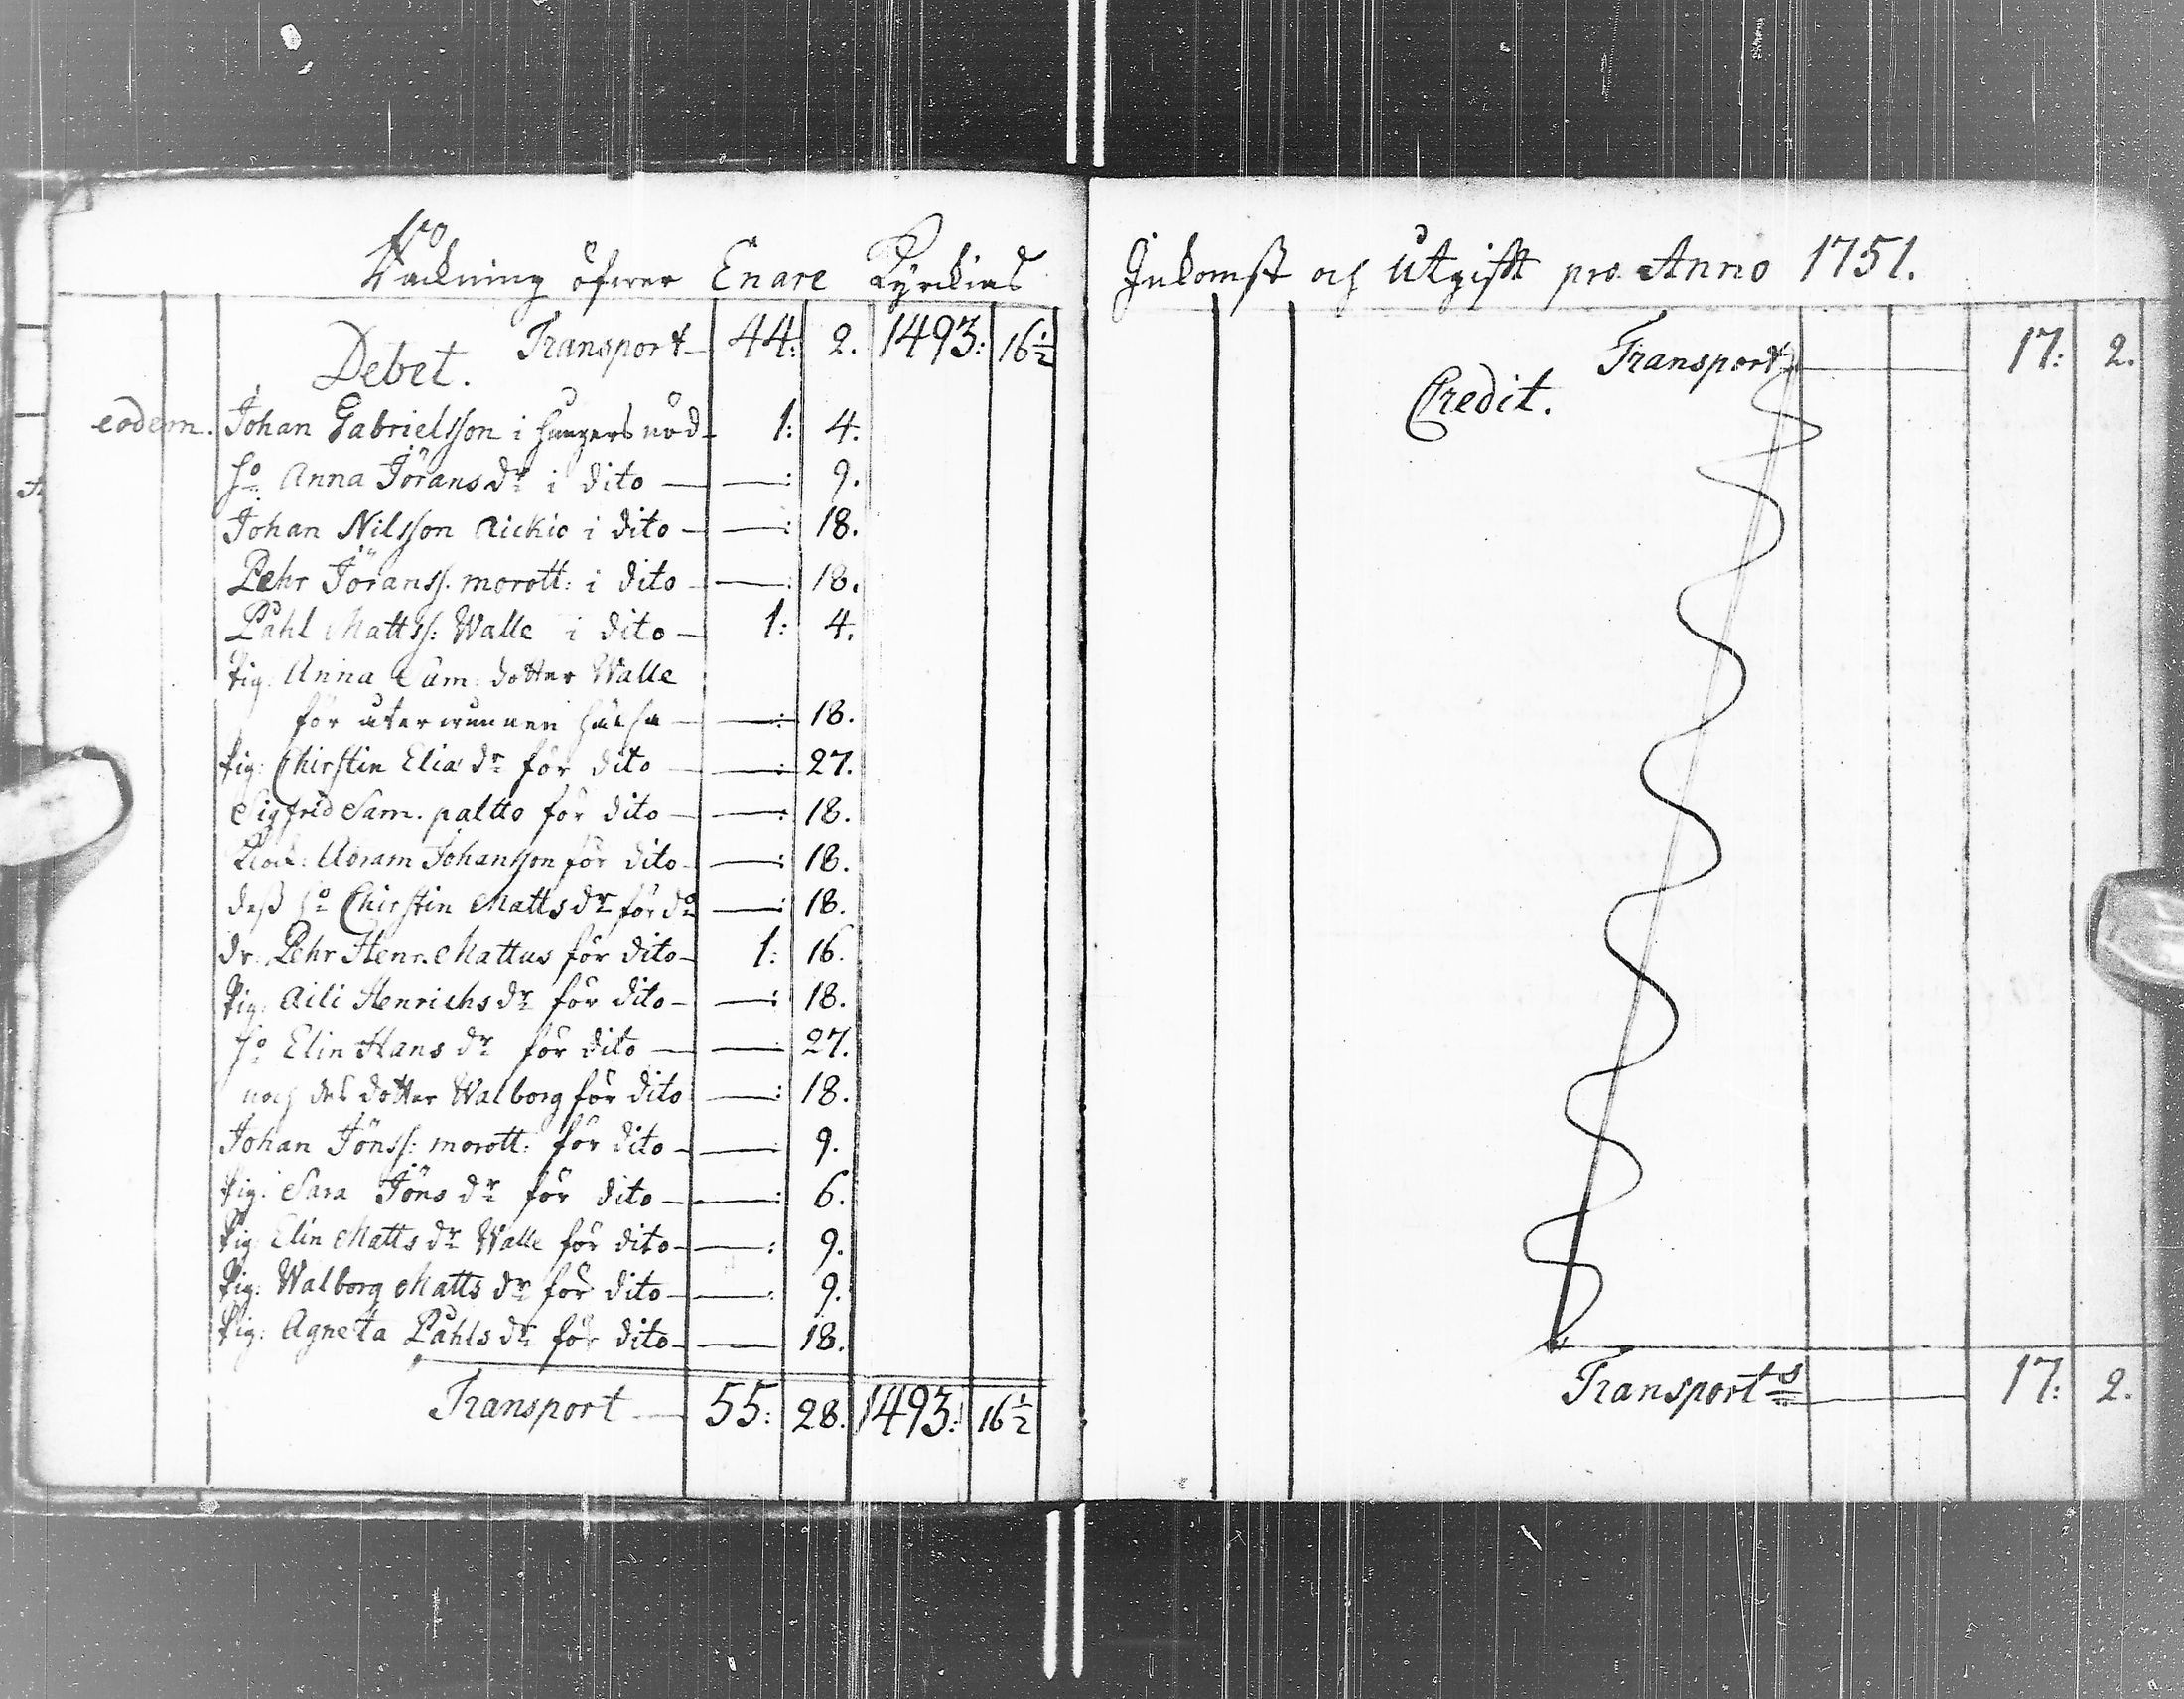 Räckning öfwer Enare Kyrckias
Debet. Transport 44: 2. 1493: 16½
eodem. Johan Gabrielsson i hungers nöd 1: 4.
ho Anna Jörans dr i dito —: 9.
Johan Nilsson Aickio i dito —: 18.
Pehr Jöranss. morott: i dito —: 18.
Påhl Mattss: Walle i dito 1: 4.
Pig. Anna Sam: dotter Walle
för återwunnen hälsa —: 18.
Pig: Chirstin Elia dr för dito —: 27.
Sigfrid Sam. paltto för dito —: 18.
Klock: Abram Johansson för dito —: 18.
dess ho Chirstin Matts dr för do —: 18.
dr: Pehr Henr. Mattus för dito 1: 16.
Pig: Aili Henrichs dr för dito —: 18.
ho Elin Hans dr för dito — 27.
noch des dotter Walborg för dito —: 18.
Johan Jönss: morott: för dito — 9.
Pig: Sara Jöns dr för dito —: 6.
Pig: Elin Matts dr Walle för dito —: 9.
Pig: Walborg Matts dr för dito —: 9.
Pig: Agneta Påhls dr för dito — 18.
Transport — 55: 28. 1493: 16½
Inkomst och Utgift pro Anno 1751.
Transport 17: 2.
Credit.
Transports 17: 2.